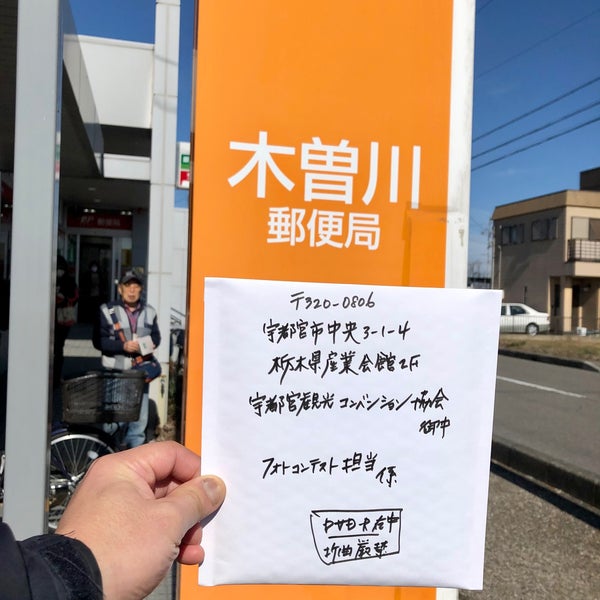 木曽川
郵便局
〒320-0806
宇都宮市中央3-1-4
栃木県産業会館2F
宇都宮観光コンベンション協会
御中
フォトコンテスト担当
係
在中
折曲厳禁